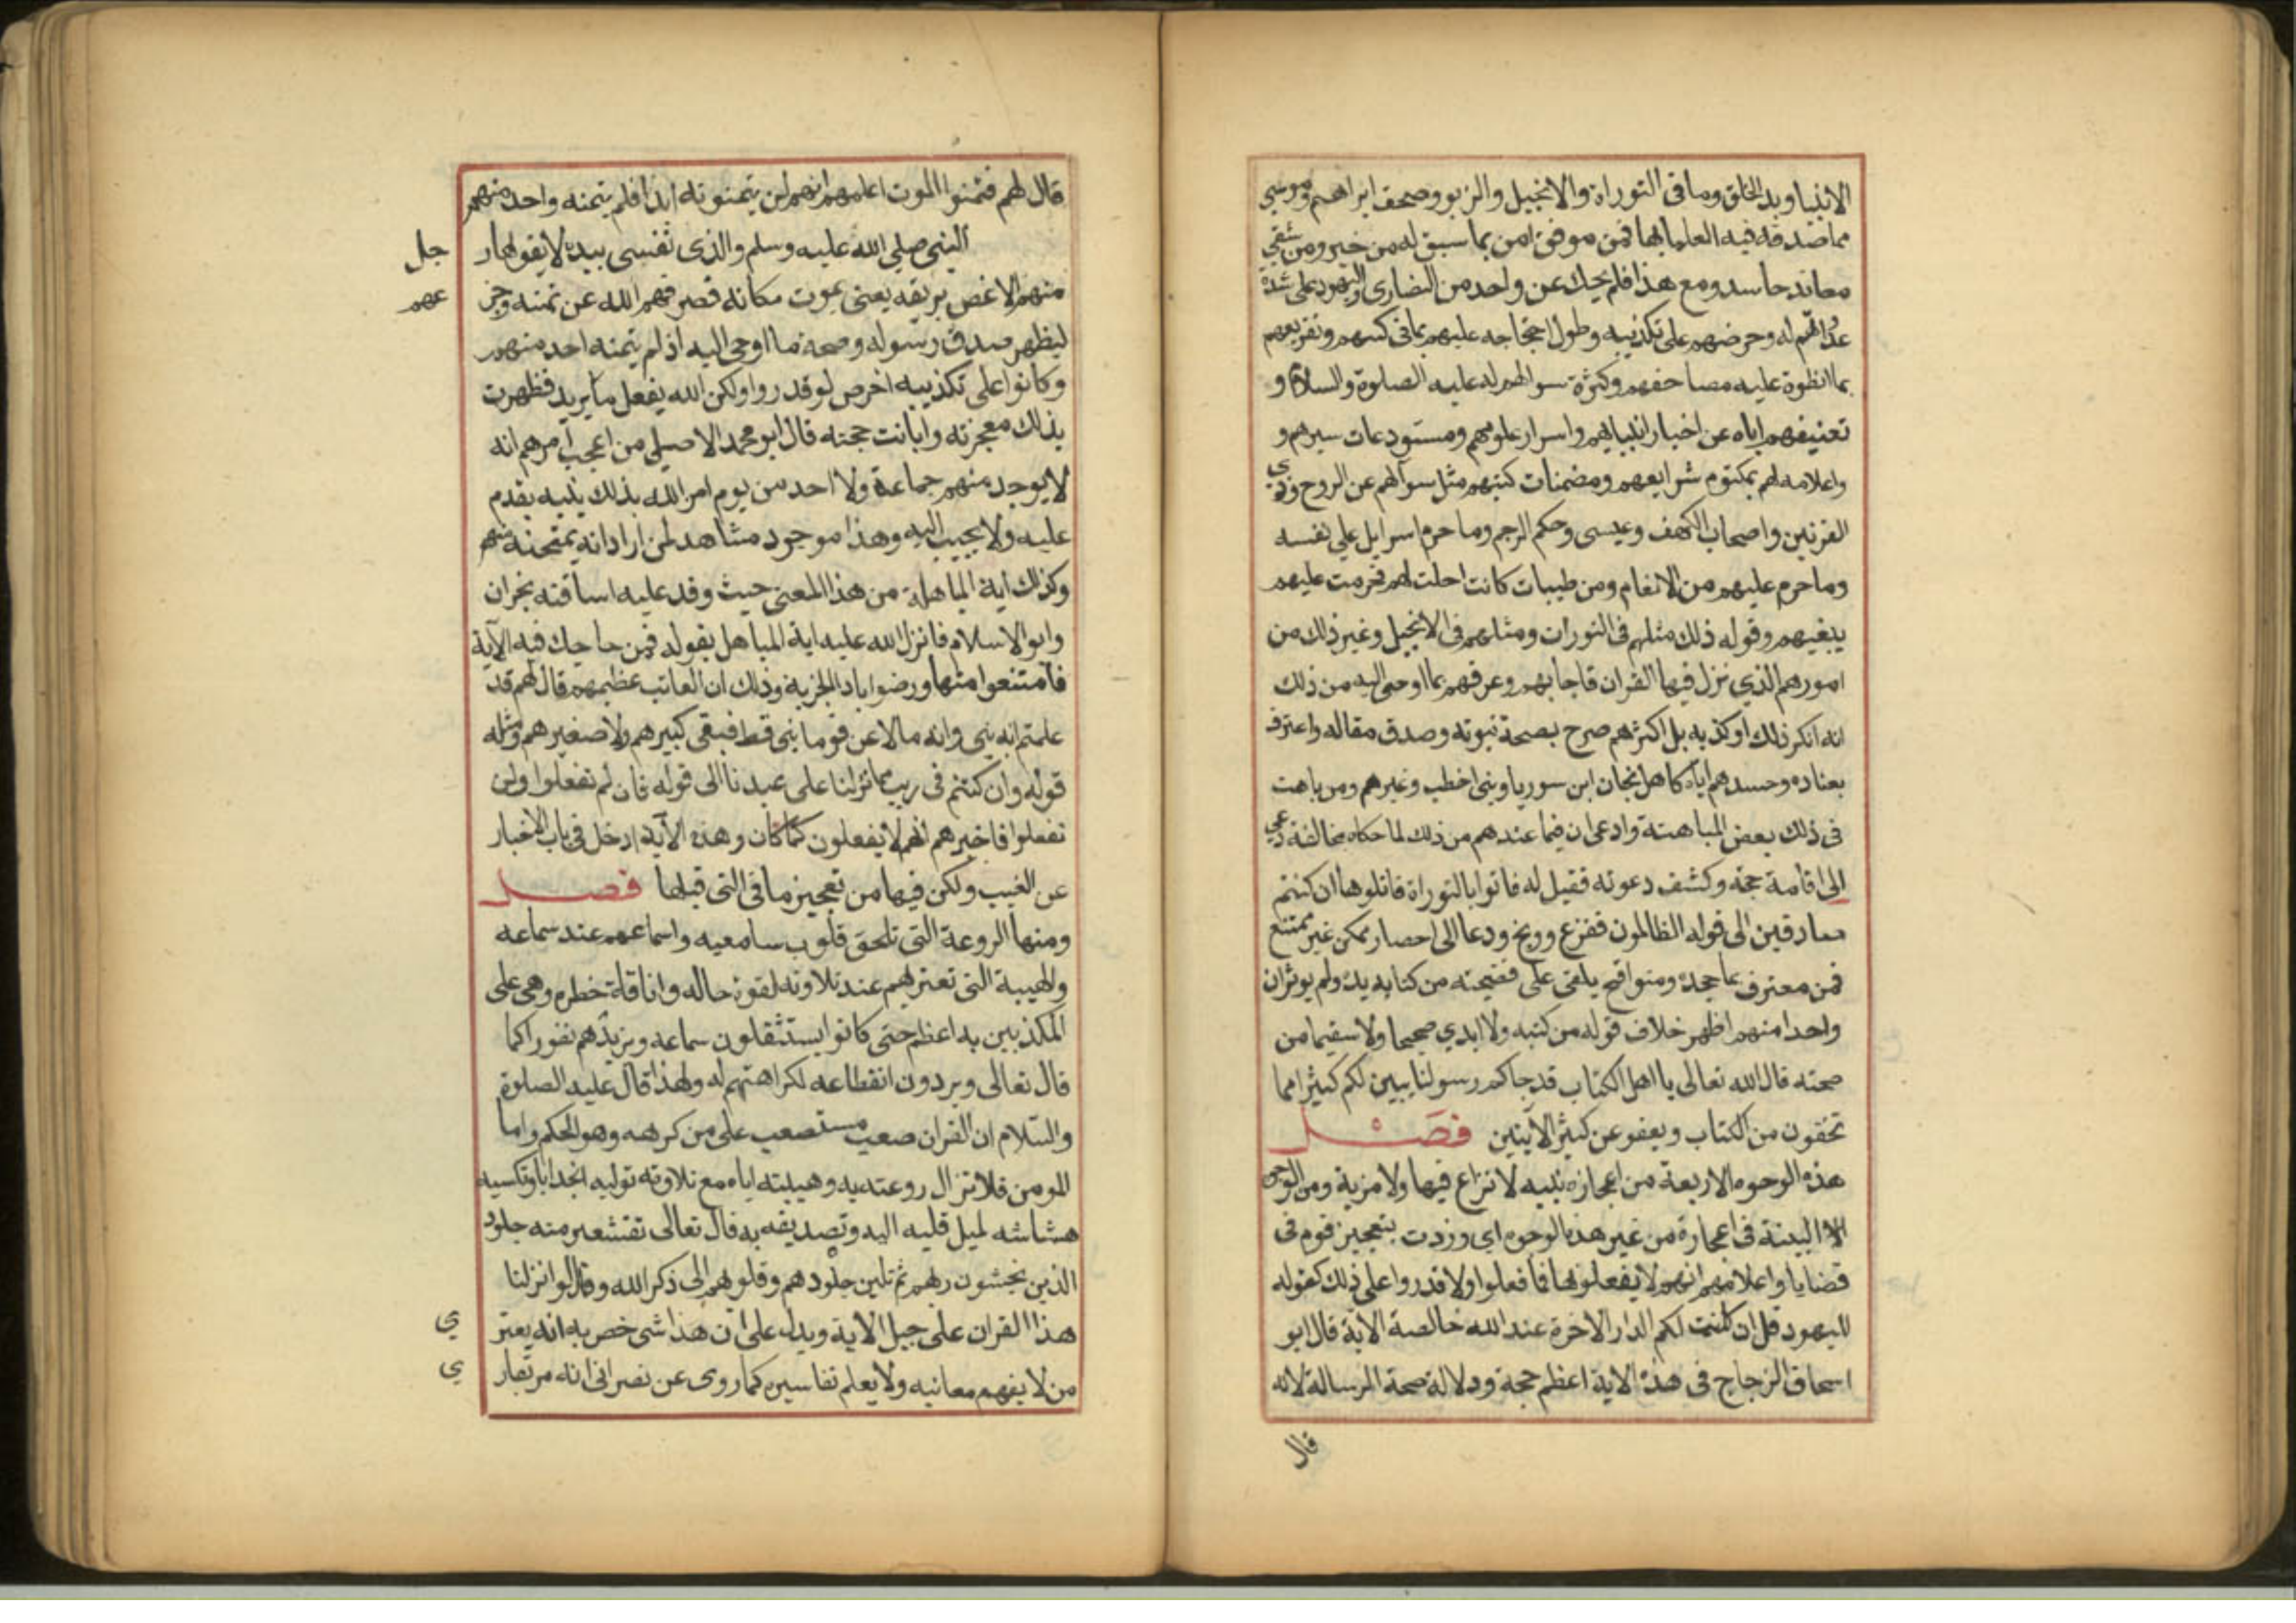 الانبيا وبد الخلق وما فى التوراة والانجيل والزبور وصحف ابراهيم وموسي
مما صدقه فيه العلما بها فمن موفق امن بما سبق له من خير ومن شقي
معاند حاسد ومع هذا فلم يحك عن واحد من النصارى واليهود على شدة
عداتهم له وحرضهم على تكذيبه وطول احتجاجه عليهم بما فى كتبهم وتقريعهم
بما انطوة عليه مصاحفهم وكثرة سوالهم له عليه الصلوة والسلام و
تعنيفهم اياه عن اخبار انبيائهم واسرار علومهم ومستودعات سيرهم و
واعلامه لهم بمكتوم شرايعهم ومضمنات كتبهم مثل سوالهم عن الروح وذى
القرنين واصحاب الكهف وعيسى وحكم الرجم وما حرم اسرايل على نفسه
وما حرم عليهم من الانعام ومن طيبات كانت احلت لهم فحرمت عليهم
ببغيهم وقوله ذلك مثلهم فى التورات ومثلهم فى الانجيل وغير ذلك من
امورهم الذي نزل فيها القران فاجابهم وعرفهم بما اوحى اليه من ذلك
انه انكر ذلك او كذبه بل اكثرهم صرح بصحة نبوته وصدق مقاله واعترف
بعناده وحسدهم اياه كاهل نجان ابن سوريا وبنى اخطب وغيرهم ومن باهت
فى ذلك بعض المباهتة وادعى ان فيما عندهم من ذلك لما حكاه مخالفة دعي
الى اقامة حجة وكشف دعوته فقيل له فاتوا بالتوراة فاتلوها ان كنتم
صادقين الى قوله الظالمون ففزع ووبخ ودعا الى احصار ممكن غير ممتنع
فمن معترف بما جحده ومتواقح يلقى على فضيحته من كتابه يده ولم يوثر ان
واحدا منهم اظهر خلاف قوله من كتبه ولا ابدي صحيحا ولا سقيما من
صحته قال الله تعالى يا اهل الكتاب قد جاكم رسولنا يبين لكم كثيرا مما
تخفون من الكتاب ويعفو عن كثير الآيتين فصل
هذه الوحوه الاربعة من اعجازه بينه لا نزاع فيها ولا مزية ومن الوجوه
البينة فى اعجازه من غير هذه الوجوه اي وردت بتعجيز قوم فى
قضايا واعلامهم انهم لا يفعلونها فما فعلوا ولا قدروا على ذلك كقوله
لليهود قل ان كانت لكم الدار الاخرة عند الله خالصة الاية قال ابو
اسحاق الزجاج فى هذه الاية اعظم حجة ودلالة صحة الرسالة لانه
قال
قال لهم فتمنوا الموت اعلمهم انهم لن يتمنونه ابدا فلم يتمنه واحد منهم
النبى صلى الله عليه وسلم والذى نفسى بيده لا يقولها ر جل
منهم الا غص بريقه يعنى يموت مكانه فصرفهم الله عن تمنه وجز عهم
ليظهر صدق رسوله وصحة ما اوحى اليه اذ لم يتمنه احد منهم
وكانوا على تكذيبه احرص لو قدروا ولكن الله يفعل ما يريد فظهرت
بذلك معجزته وابانت حجته قال ابو محمد الاصيلى من اعجب امرهم انه
لا يوجد منهم جماعة ولا احد من يوم امر الله بذلك نبيه يقدم
عليه ولا يجيب اليه وهذا موجود مشاهد لمن اراد انه يمتحنه منهم
وكذلك اية المباهلة من هذا المعنى حيث وفد عليه اساقفه نجران
وابو الاسلام فانزل الله عليه اية المباهل بقوله فمن حاجك فيه الآية
فامتنعوا منها ورضوا باد الجزية وذلك ان العاتب عظيمهم قال لهم قد
علمتم انه نبى وانه ما لاعن قوما نبى قط فبقى كبيرهم ولا صغيرهم ومثله
قوله وان كنتم فى ريب مما نزلنا على عبدنا الى قوله فان لم تفعلوا ولن
تفعلوا فاخبرهم انهم لا يفعلون كما كان وهذه الآية ادخل فى باب الاخبار
عن الغيب ولكن فيها من تعجيز ما فى التى قبلها فصل
ومنها الروعة التى تلحق قلوب سامعيه واسماعهم عند سماعه
والهيبة التى تعتريهم عند تلاوته لقوة حاله واناقلة خطره وهى على
المكذبين به اعظم حتى كانوا يستثقلون سماعه ويزيدهم نفورا كما
قال تعالى ويردون انقطاعه لكراهتهم له ولهذا قال عليه الصلوة
والسلام ان القران صعب مستصعب على من كرهه وهو الحكم واما
المومن فلا تزال روعته به وهيبته اياه مع تلاوته توليه انجدابا وتكسيه
هشاشه لميل قلبه اليه وتصديقه به قال تعالى تقشعر منه جلود
الذين يخشون ربهم ثم تلين جلودهم وقلوبهم الى ذكر الله وقال لو انزلنا
هذا القران على جبل الاية ويدل على ان هذا شى خص به انه يعتر ي
من لا يفهم معانيه ولا يعلم تفاسيره كما روى عن نصرانى انه مر بقار ي